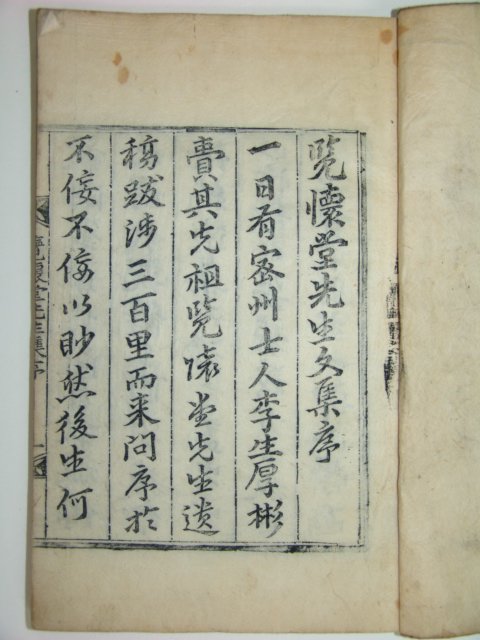 览懷堂先生文集序
一日有密州士人李生厚彬
賫其先祖览懷堂先生遺
稿跋涉三百里而来問序於
不佞不佞以眇然後生何